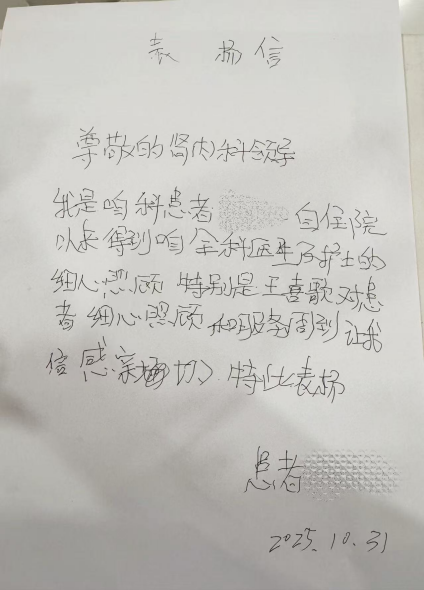 表扬信
尊敬的肾内科领导
我是咱科患者 自住院
以来得到咱全科医生及护士的
细心照顾 特别是王喜歌对患
者细心照顾和服务周到 让我
倍感亲切 特此表扬
患者
2025.10.31